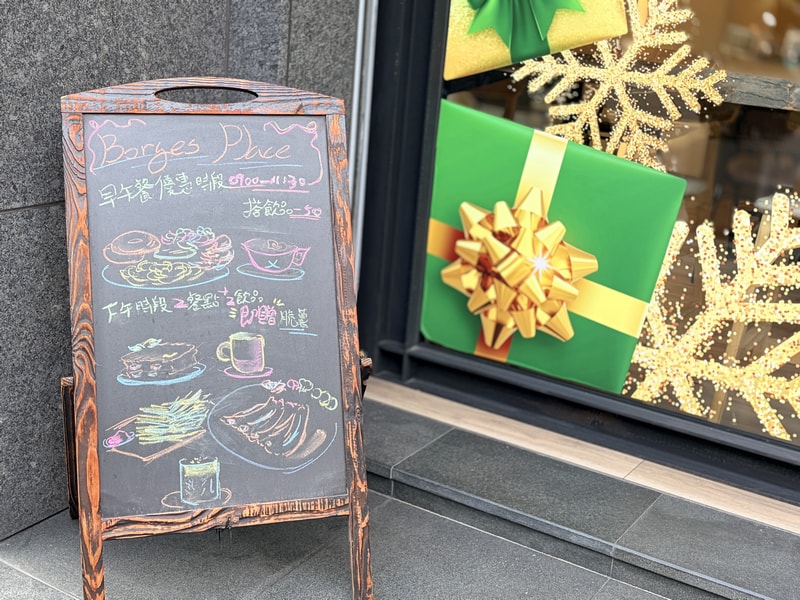 Borges Place
早午餐優惠時段 0900-1130
搭飲品-50
下午時段 2餐點+2飲品
即贈 脆薯